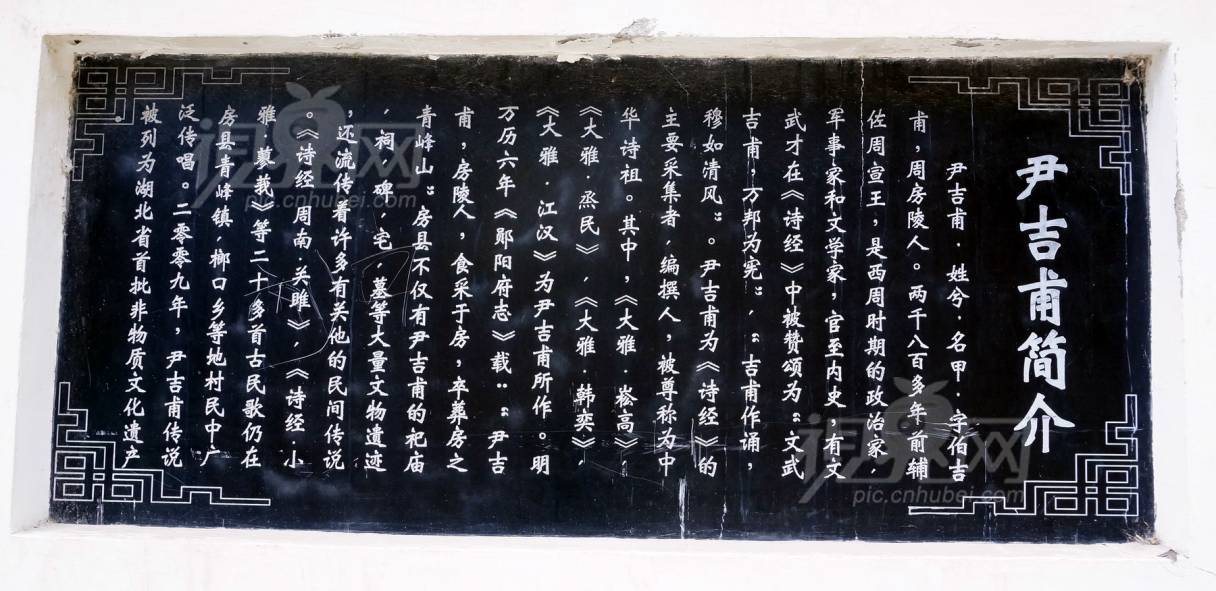 尹吉甫简介
尹吉甫·姓兮·名甲·字伯吉
甫，周房陵人。两千八百多年前辅
佐周宣王，是西周时期的政治家，
军事家和文学家，官至内史，有文
武才在《诗经》中被赞颂为“文武
吉甫，万邦为宪”，“吉甫作诵，
穆如清风”。尹吉甫为《诗经》的
主要采集者，编撰人，被尊称为中
华诗祖。其中，《大雅·崧高》，
《大雅·烝民》，《大雅·韩奕》，
《大雅·江汉》为尹吉甫所作。明
万历六年《郧阳府志》载：“尹吉
甫，房陵人，食采于房，卒葬房之
青峰山”房县不仅有尹吉甫的祀庙
，祠，碑，宅，墓等大量文物遗迹
，还流传着许多有关他的民间传说
。《诗经·周南·关雎》，《诗经·小
雅·蓼莪》等二十多首古民歌仍在
房县青峰镇，榔口乡等地村民中广
泛传唱。二零零九年，尹吉甫传说
被列为湖北省首批非物质文化遗产
视界网
pic.cnhubei.com
视界网
pic.cnhubei.com